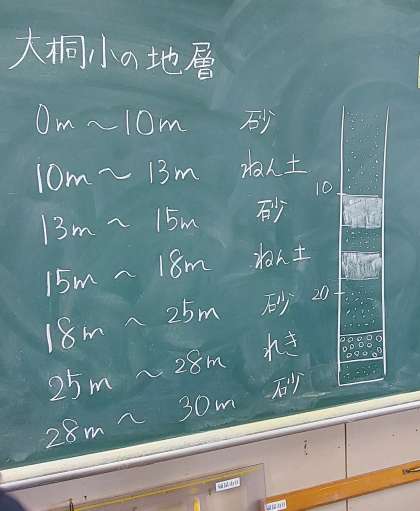 大桐小の地層
0m〜10m 砂
10m〜13m ねん土
13m〜15m 砂
15m〜18m ねん土
18m〜25m 砂
25m〜28m れき
28m〜30m 砂
10
20